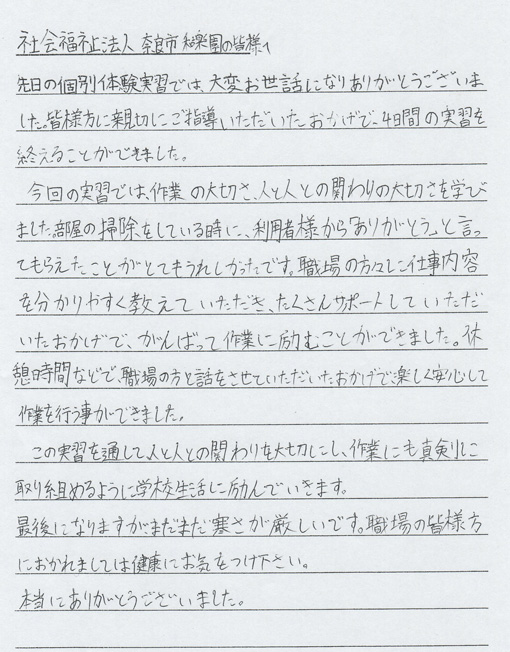 社会福祉法人 奈良市 和楽園の皆様へ
先日の個別体験実習では、大変お世話になりありがとうございま
した。皆様方に親切にご指導いただいたおかげで、4日間の実習を
終えることができました。
今回の実習では、作業の大切さ、人と人との関わりの大切さを学び
ました。部屋の掃除をしている時に、利用者様から「ありがとう。」と言っ
てもらえたことがとてもうれしかったです。職場の方々に仕事内容
を分かりやすく教えていただき、たくさんサポートしていただ
いたおかげで、がんばって作業に励むことができました。休
憩時間などで、職場の方と話をさせていただいたおかげで楽しく安心して
作業を行う事ができました。
この実習を通して人と人との関わりを大切にし、作業にも真剣に
取り組めるように学校生活に励んでいきます。
最後になりますがまだまだ寒さが厳しいです。職場の皆様方
におかれましては健康にお気をつけ下さい。
本当にありがとうございました。